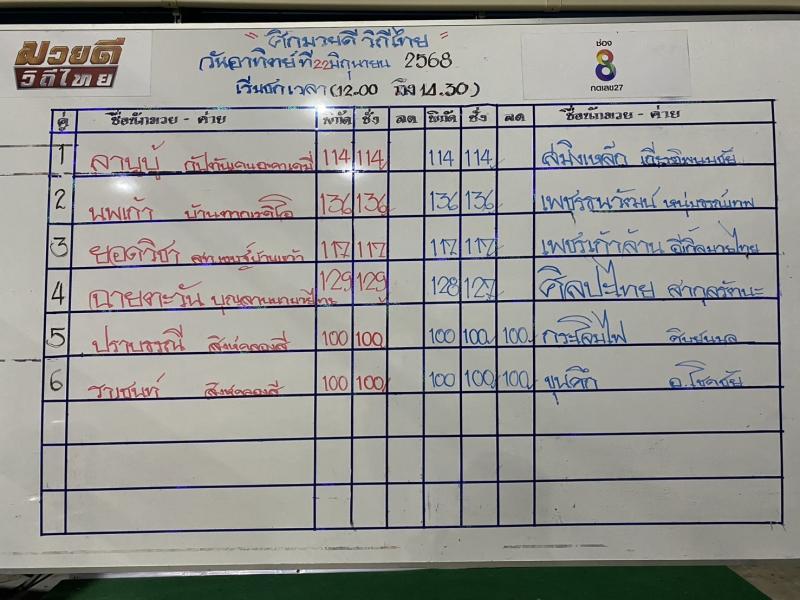 มวยดี
วิถีไทย
"ศึกมวยดี วิถีไทย"
วันอาทิตย์ที่ 22 มิถุนายน 2568
เริ่มชกเวลา (12.00 ถึง 14.30)
ช่อง
8
กดเลข27
คู่ ชื่อนักมวย - ค่าย พิกัด ชั่ง ลด พิกัด ชั่ง ลด ชื่อนักมวย - ค่าย
1 ลาบูบู้ กัปตันเคนอะคาเดมี่ 114 114 114 114 สมิงเหล็ก
2 นพเก้า 136 136 136 136
3 ยอดวิชา 117 117 117 117 เพชรเก้าล้าน
4 ฉายตะวัน 129 129 128 127 ศิลปะไทย
5 ปราบธรณี สิงห์คลองสี่ 100 100 100 100 100 กระโจมไฟ
6 ราเชนทร์ สิงห์คลองสี่ 100 100 100 100 100 ขุนศึก อ.โชคชัย